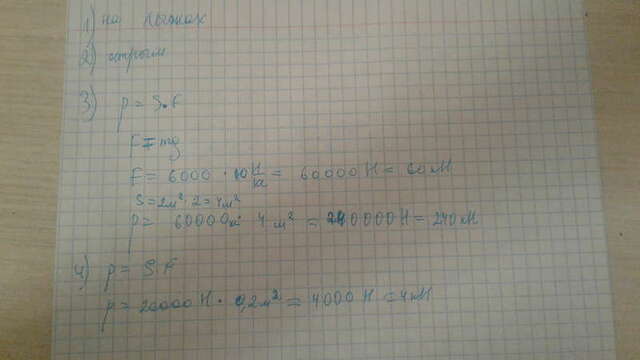 1) на лыжах
2) острым
3) p = S·F
F = mg
F = 6000 · 10 Н/кг = 60000 Н = 60 кН
S = 2м² · 2 = 4м²
p = 60000 · 4 м² = 240000 Н = 240 кН
4) p = S·F
p = 20000 Н · 0,2 м² = 4000 Н = 4 кН